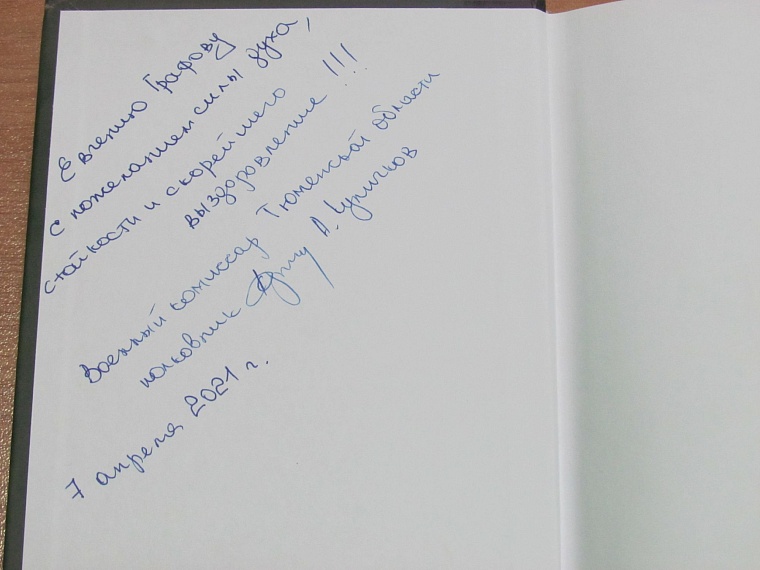 Евгению Графову
с пожеланием силы духа,
стойкости и скорейшего
выздоровление !!!
Военный комиссар Тюменской области
полковник А. Куличков
7 апреля 2021 г.